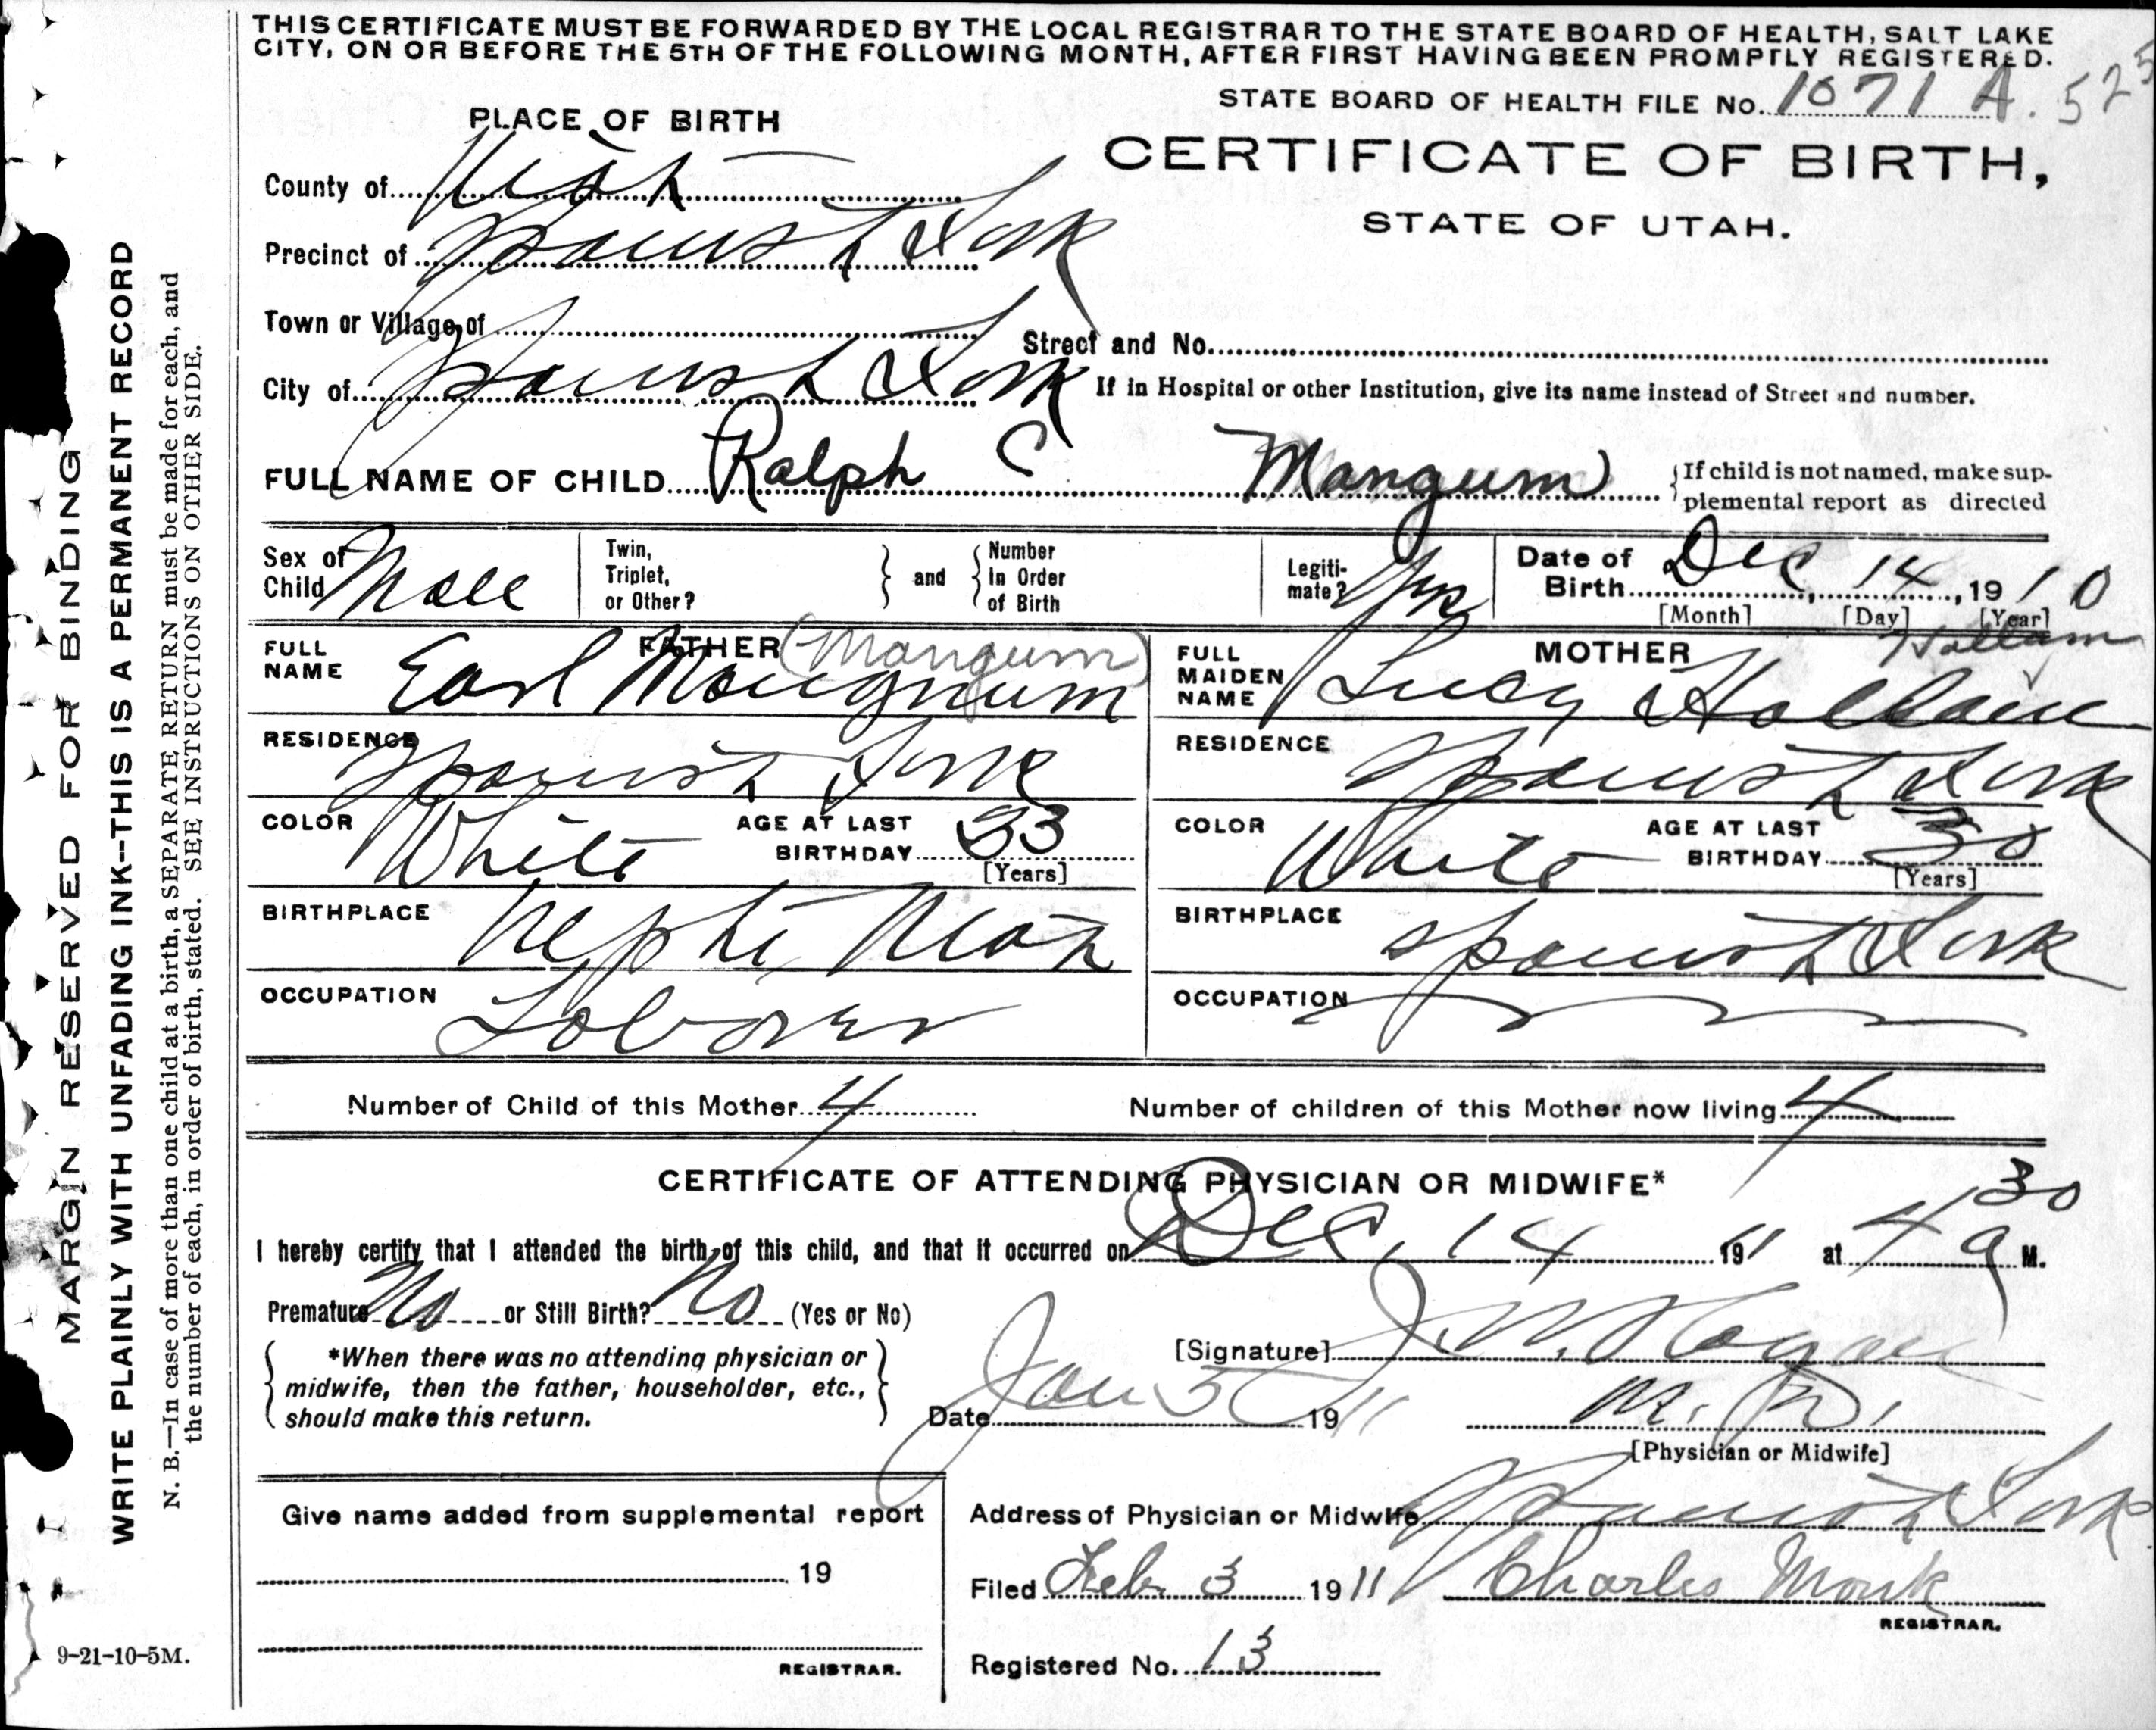 THIS CERTIFICATE MUST BE FORWARDED BY THE LOCAL REGISTRAR TO THE STATE BOARD OF HEALTH, SALT LAKE
CITY, ON OR BEFORE THE 5TH OF THE FOLLOWING MONTH, AFTER FIRST HAVING BEEN PROMPTLY REGISTERED.
STATE BOARD OF HEALTH FILE No. 1071 A. 525
PLACE OF BIRTH
CERTIFICATE OF BIRTH,
STATE OF UTAH.
County of Utah
Precinct of Spanish Fork
Town or Village of
Street and No.
City of Spanish Fork
If in Hospital or other Institution, give its name instead of Street and number.
FULL NAME OF CHILD Ralph C Mangum
{If child is not named, make sup-
plemental report as directed
Sex of Child Male
Twin, Triplet, or Other?
and
Number In Order of Birth
Legiti-mate? Yes
Date of Birth Dec 14, 1910
[Month] [Day] [Year]
FATHER (Mangum)
FULL NAME Earl Mougnum
MOTHER Hallam
FULL MAIDEN NAME Lucy
RESIDENCE Spanish Fork
RESIDENCE Spanish Fork
COLOR White
AGE AT LAST BIRTHDAY 33
[Years]
COLOR White
AGE AT LAST BIRTHDAY 30
[Years]
BIRTHPLACE Nephi Utah
BIRTHPLACE Spanish Fork
OCCUPATION Laborer
OCCUPATION
Number of Child of this Mother 4
Number of children of this Mother now living 4
CERTIFICATE OF ATTENDING PHYSICIAN OR MIDWIFE*
I hereby certify that I attended the birth of this child, and that it occurred on Dec, 14 191 at 4 30 a M.
Premature No or Still Birth? No (Yes or No)
*When there was no attending physician or
midwife, then the father, householder, etc.,
should make this return.
[Signature] J. W.
Date Jan 5 1911
M. D.
[Physician or Midwife]
Give name added from supplemental report
19
REGISTRAR.
Address of Physician or Midwife Spanish Fork
Filed Feb 3 1911 Charles Monk
REGISTRAR.
Registered No. 13
MARGIN RESERVED FOR BINDING
WRITE PLAINLY WITH UNFADING INK--THIS IS A PERMANENT RECORD
N. B.—In case of more than one child at a birth, a SEPARATE RETURN must be made for each, and
the number of each, in order of birth, stated. SEE INSTRUCTIONS ON OTHER SIDE.
9-21-10-5M.